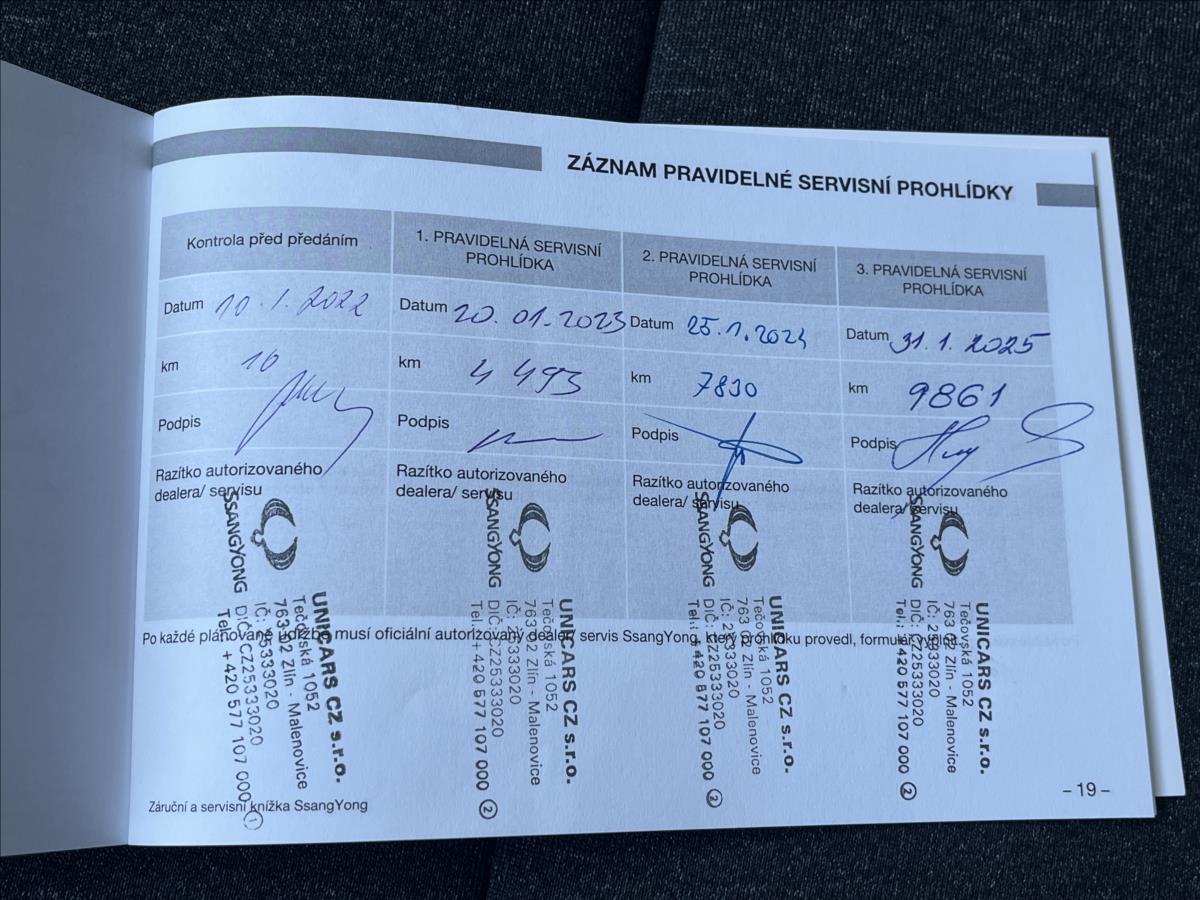 ZÁZNAM PRAVIDELNÉ SERVISNÍ PROHLÍDKY
Kontrola před předáním
Datum 10.1.2022
km 10
Podpis
Razítko autorizovaného
dealera/ servisu
1. PRAVIDELNÁ SERVISNÍ
PROHLÍDKA
Datum 20.01.2023
km 4 493
Podpis
Razítko autorizovaného
dealera/ servisu
2. PRAVIDELNÁ SERVISNÍ
PROHLÍDKA
Datum 25.1.2024
km 7830
Podpis
Razítko autorizovaného
dealera/ servisu
3. PRAVIDELNÁ SERVISNÍ
PROHLÍDKA
Datum 31.1.2025
km 9861
Podpis
Razítko autorizovaného
dealera/ servisu
SSANGYONG
UNICARS CZ s.r.o.
Tečovská 1052
763 02 Zlín - Malenovice
IČ: 25333020
DIČ: CZ25333020
Tel.: + 420 577 107 000 1
SSANGYONG
UNICARS CZ s.r.o.
Tečovská 1052
763 02 Zlín - Malenovice
IČ: 25333020
DIČ: CZ25333020
Tel.: + 420 577 107 000 2
SSANGYONG
UNICARS CZ s.r.o.
Tečovská 1052
763 02 Zlín - Malenovice
IČ: 25333020
DIČ: CZ25333020
Tel.: + 420 577 107 000 2
SSANGYONG
UNICARS CZ s.r.o.
Tečovská 1052
763 02 Zlín - Malenovice
IČ: 25333020
DIČ: CZ25333020
Tel.: + 420 577 107 000 2
Po každé plánované údržbě musí oficiální autorizovaný dealer/ servis SsangYong, který prohlídku provedl, formulář
Záruční a servisní knížka SsangYong
– 19 –